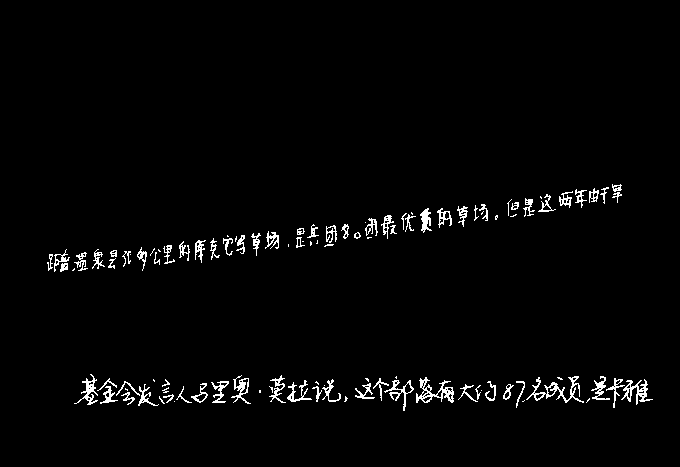 距温泉县30多公里的库克它乌草场,是兵团80团最优质的草场。但是这两年由于旱
基金会发言人马里奥·莫拉说,这个部落有大约87名成员,是卡雅